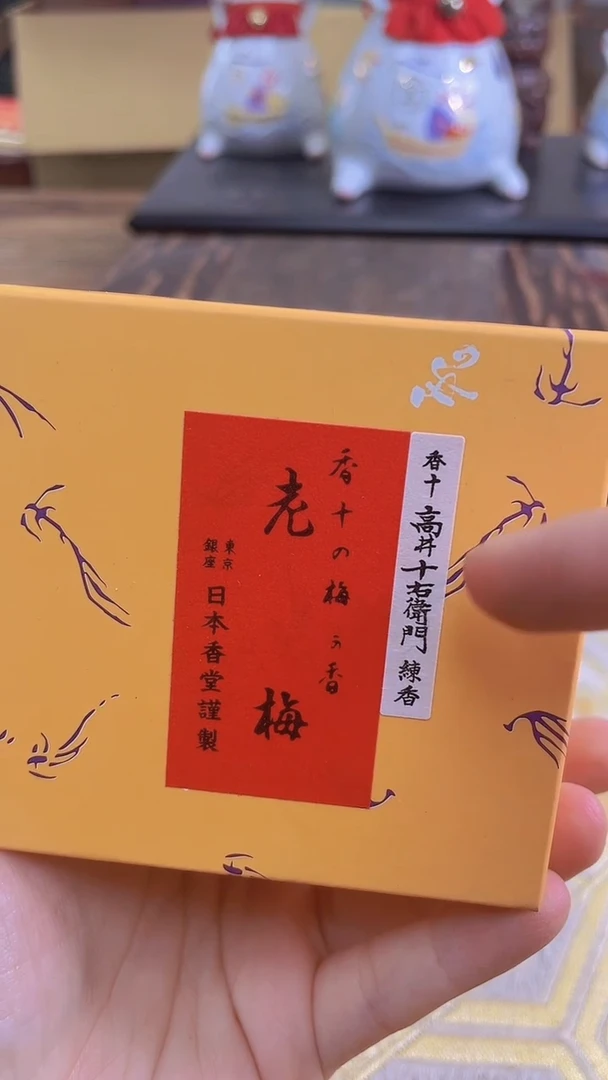 香十 高井十右衛門 練香
香十の梅の香
老梅
東京
銀座
日本香堂謹製